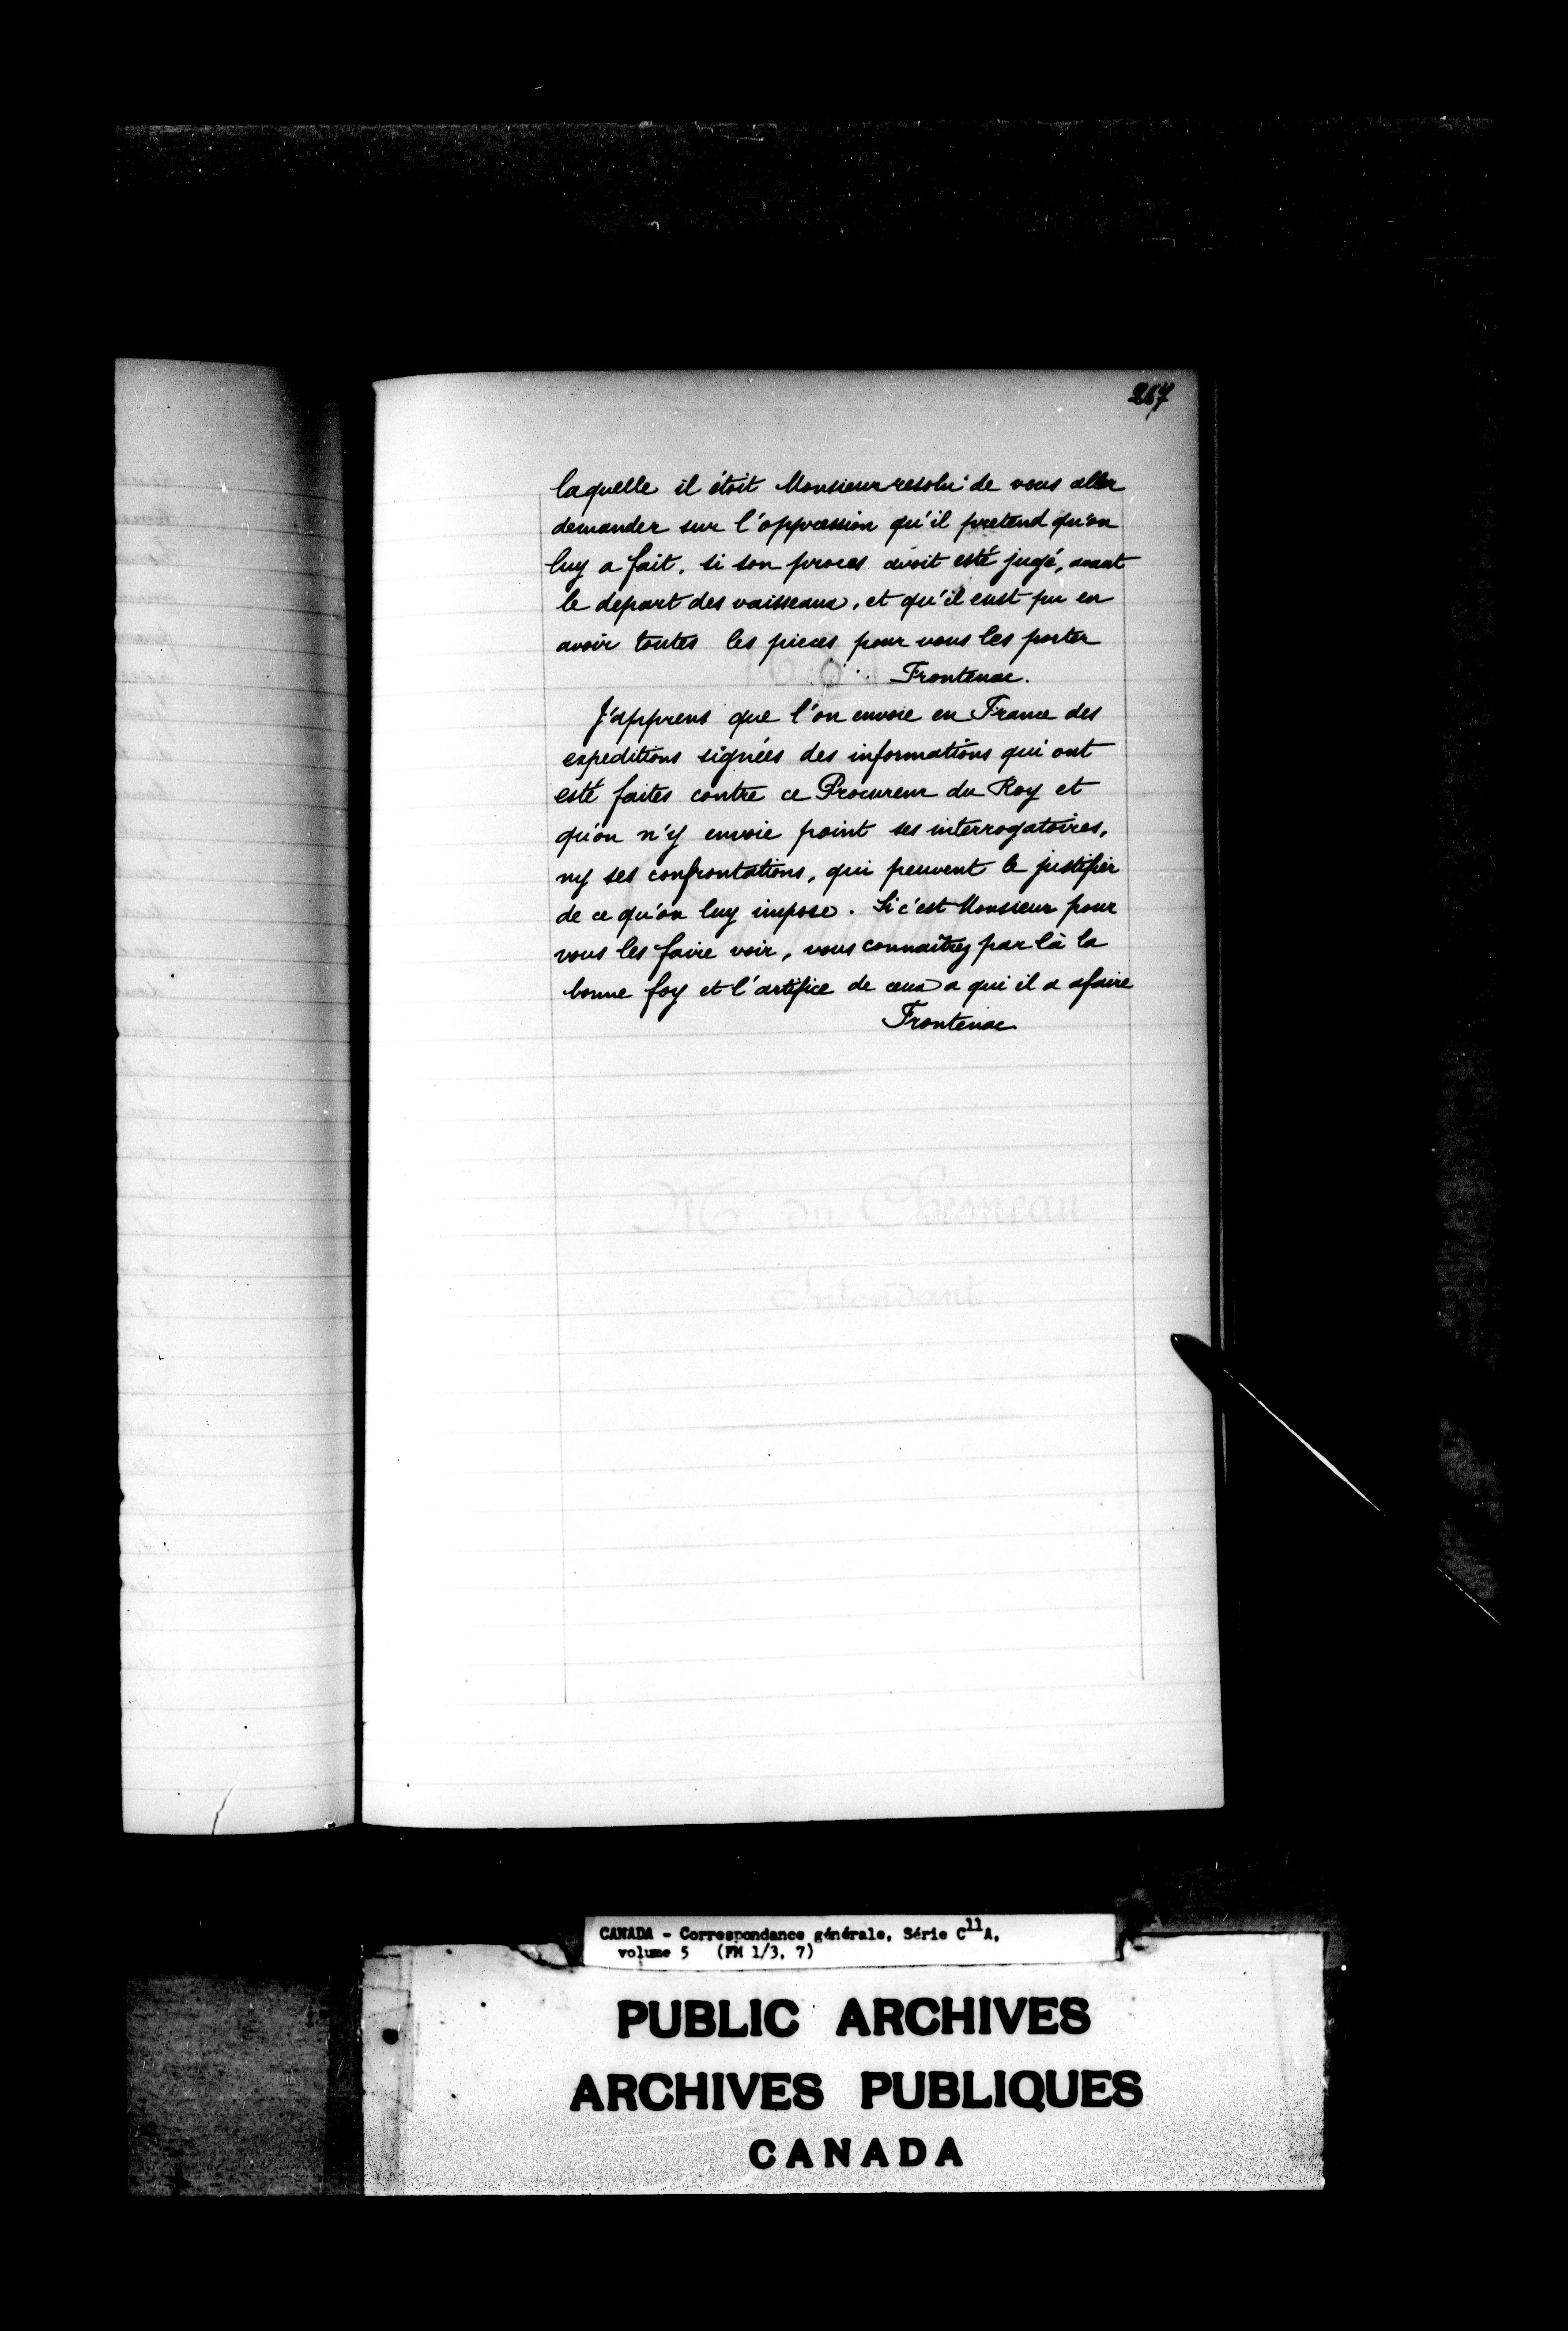 267
laquelle il étoit Monsieur resolu de vous aller
demander sur l'oppression qu'il pretend qu'on
luy a fait, si son proces avoit esté jugé, avant
le depart des vaisseaux, et qu'il eust pu en
avoir toutes les pieces pour vous les porter
Frontenac.
J'apprens que l'on envoie en France des
expeditions signées des informations qui ont
esté faites contre ce Procureur du Roy et
qu'on n'y envoie point ses interrogatoires,
ny ses confrontations, qui peuvent le justifier
de ce qu'on luy impose. Si c'est Monsieur pour
vous les faire voir, vous connaîtrez par là la
bonne foy et l'artifice de ceux a qui il a afaire
Frontenac.
M du Chesneau
Intendant
CANADA - Correspondance générale, Série C11A,
volume 5 (FM 1/3, 7)
PUBLIC ARCHIVES
ARCHIVES PUBLIQUES
CANADA